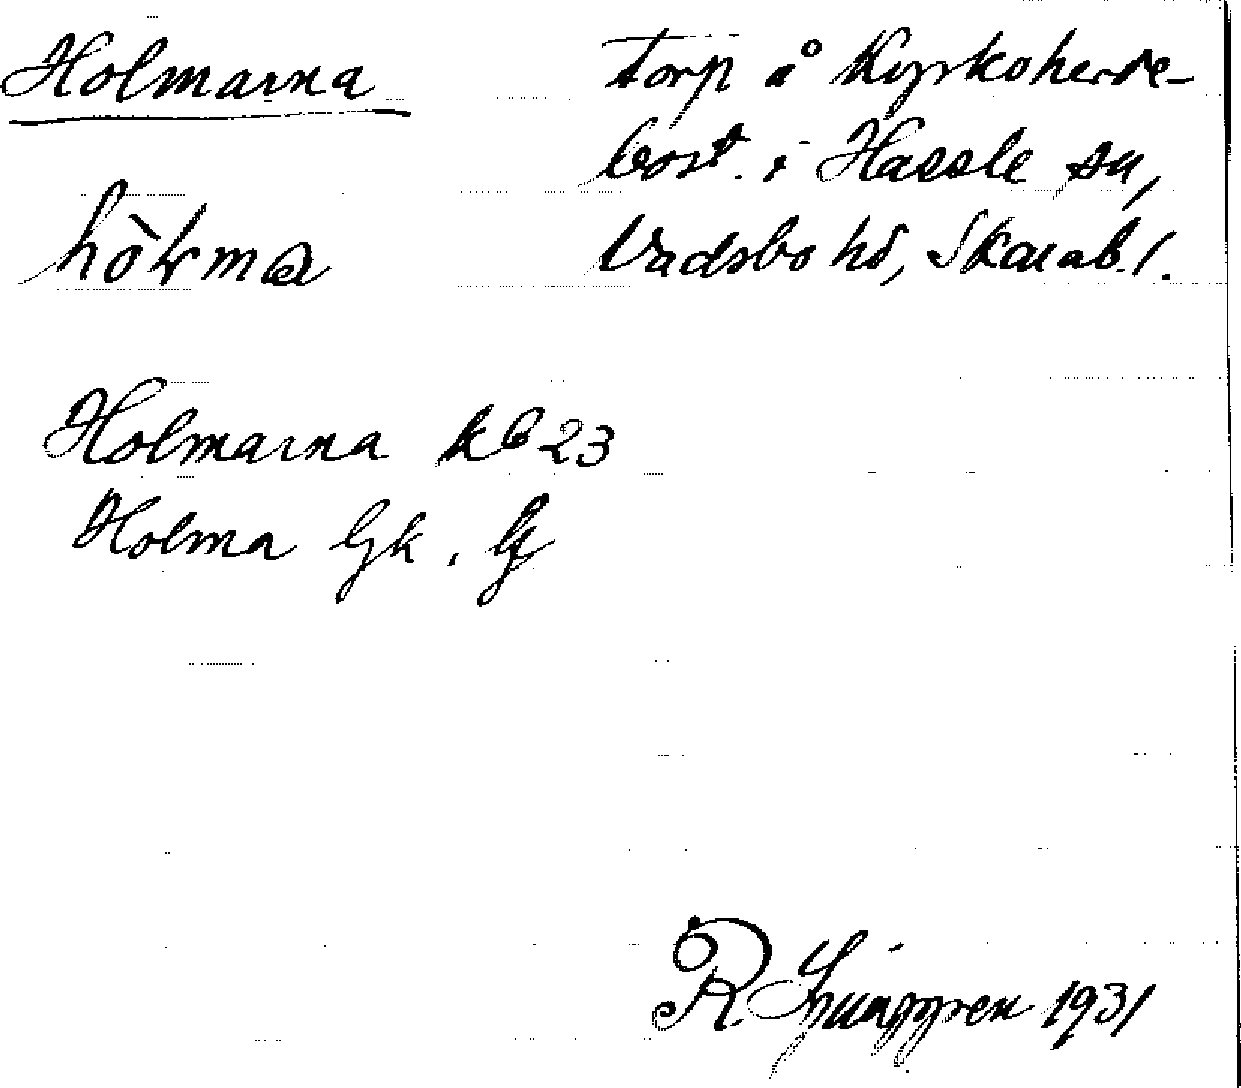 Holmarna
torp å Kyrkoherde-
bost. i Hassle sn,
Vadsbo hd, Skarab. l.
hòlma
Holmarna kb 23
Holma Gk. G
R. Ljunggren 1931